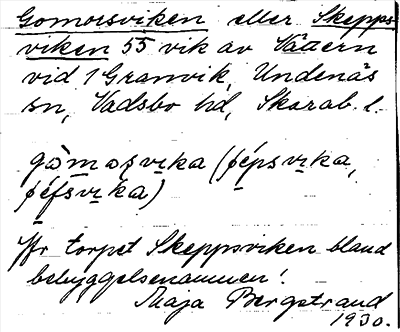 Gomorsviken eller Skepps-
viken 55 vik av Vättern
vid 1 Granvik, Undenäs
sn, Vadsbo hd, Skarab. l.
gòmorvika (ʃépsvika,
ʃéfsvika)
Jfr torpet Skeppsviken bland
bebyggelsenamnen!
Maja Bergstrand
1930.